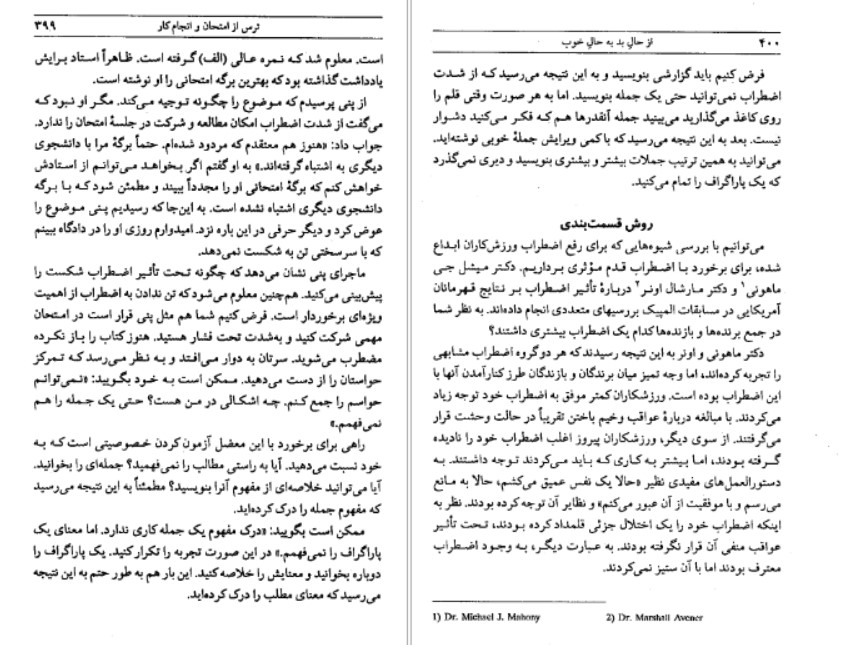 ترس از امتحان و انجام کار ۳۹۹
است. معلوم شد که نمره عالی (الف) گرفته است. ظاهراً استاد برایش
یادداشت گذاشته بود که بهترین برگه امتحانی را او نوشته است.
از پنی پرسیدم که موضوع را چگونه توجیه می‌کند. مگر او نبود که
می‌گفت از شدت اضطراب امکان مطالعه و شرکت در جلسهٔ امتحان را ندارد.
جواب داد: «هنوز هم معتقدم که مردود شده‌ام. حتماً برگهٔ مرا با دانشجوی
دیگری به اشتباه گرفته‌اند.» به او گفتم اگر بخواهد می‌توانم از استادش
خواهش کنم که برگهٔ امتحانی او را مجدداً ببیند و مطمئن شود که با برگه
دانشجوی دیگری اشتباه نشده است. به این‌جا که رسیدیم پنی موضوع را
عوض کرد و دیگر حرفی در این باره نزد. امیدوارم روزی او را در دادگاه ببینم
که با سرسختی تن به شکست نمی‌دهد.
ماجرای پنی نشان می‌دهد که چگونه تحت تأثیر اضطراب شکست را
پیش‌بینی می‌کنید. هم‌چنین معلوم می‌شود که تن ندادن به اضطراب از اهمیت
ویژه‌ای برخوردار است. فرض کنیم شما هم مثل پنی قرار است در امتحان
مهمی شرکت کنید و به‌شدت تحت فشار هستید. هنوز کتاب را باز نکرده
مضطرب می‌شوید. سرتان به دوار می‌افتد و به نظر می‌رسد که تمرکز
حواستان را از دست می‌دهید. ممکن است به خود بگویید: «نمی‌توانم
حواسم را جمع کنم. چه اشکالی در من هست؟ حتی یک جمله را هم
نمی‌فهمم.»
راهی برای برخورد با این معضل آزمون کردن خصوصیتی است که به
خود نسبت می‌دهید. آیا به راستی مطالب را نمی‌فهمید؟ جمله‌ای را بخوانید.
آیا می‌توانید خلاصه‌ای از مفهوم آنرا بنویسید؟ مطمئناً به این نتیجه می‌رسید
که مفهوم جمله را درک کرده‌اید.
ممکن است بگویید: «درک مفهوم یک جمله کاری ندارد. اما معنای یک
پاراگراف را نمی‌فهمم.» در این صورت تجربه را تکرار کنید. یک پاراگراف را
دوباره بخوانید و معنایش را خلاصه کنید. این بار هم به طور حتم به این نتیجه
می‌رسید که معنای مطلب را درک کرده‌اید.
۴۰۰ از حال بد به حال خوب
فرض کنیم باید گزارشی بنویسید و به این نتیجه می‌رسید که از شدت
اضطراب نمی‌توانید حتی یک جمله بنویسید. اما به هر صورت وقتی قلم را
روی کاغذ می‌گذارید می‌بینید جمله آنقدرها هم که فکر می‌کنید دشوار
نیست. بعد به این نتیجه می‌رسید که با کمی ویرایش جملهٔ خوبی نوشته‌اید.
می‌توانید به همین ترتیب جملات بیشتر و بیشتری بنویسید و دیری نمی‌گذرد
که یک پاراگراف را تمام می‌کنید.
روش قسمت‌بندی
می‌توانیم با بررسی شیوه‌هایی که برای رفع اضطراب ورزش‌کاران ابداع
شده، برای برخورد با اضطراب قدم مؤثری برداریم. دکتر میشل جی
ماهونی۱ و دکتر مارشال اونر۲ دربارهٔ تأثیر اضطراب بر نتایج قهرمانان
آمریکایی در مسابقات المپیک بررسیهای متعددی انجام داده‌اند. به نظر شما
در جمع برنده‌ها و بازنده‌ها کدام یک اضطراب بیشتری داشتند؟
دکتر ماهونی و اونر به این نتیجه رسیدند که هر دو گروه اضطراب مشابهی
را تجربه کرده‌اند، اما وجه تمیز میان برندگان و بازندگان طرز کنارآمدن آنها با
این اضطراب بوده است. ورزشکاران کمتر موفق به اضطراب خود توجه زیاد
می‌کردند. با مبالغه دربارهٔ عواقب وخیم باختن تقریباً در حالت وحشت قرار
می‌گرفتند. از سوی دیگر، ورزشکاران پیروز اغلب اضطراب خود را نادیده
گرفته بودند، اما بیشتر به کاری که باید می‌کردند توجه داشتند. به
دستورالعمل‌های مفیدی نظیر «حالا یک نفس عمیق می‌کشم، حالا به مانع
می‌رسم و با موفقیت از آن عبور می‌کنم» و نظایر آن توجه کرده بودند. نظر به
اینکه اضطراب خود را یک اختلال جزئی قلمداد کرده بودند، تحت تأثیر
عواقب منفی آن قرار نگرفته بودند. به عبارت دیگر، به وجود اضطراب
معترف بودند اما با آن ستیز نمی‌کردند.
1) Dr. Michael J. Mahony 2) Dr. Marshall Avener